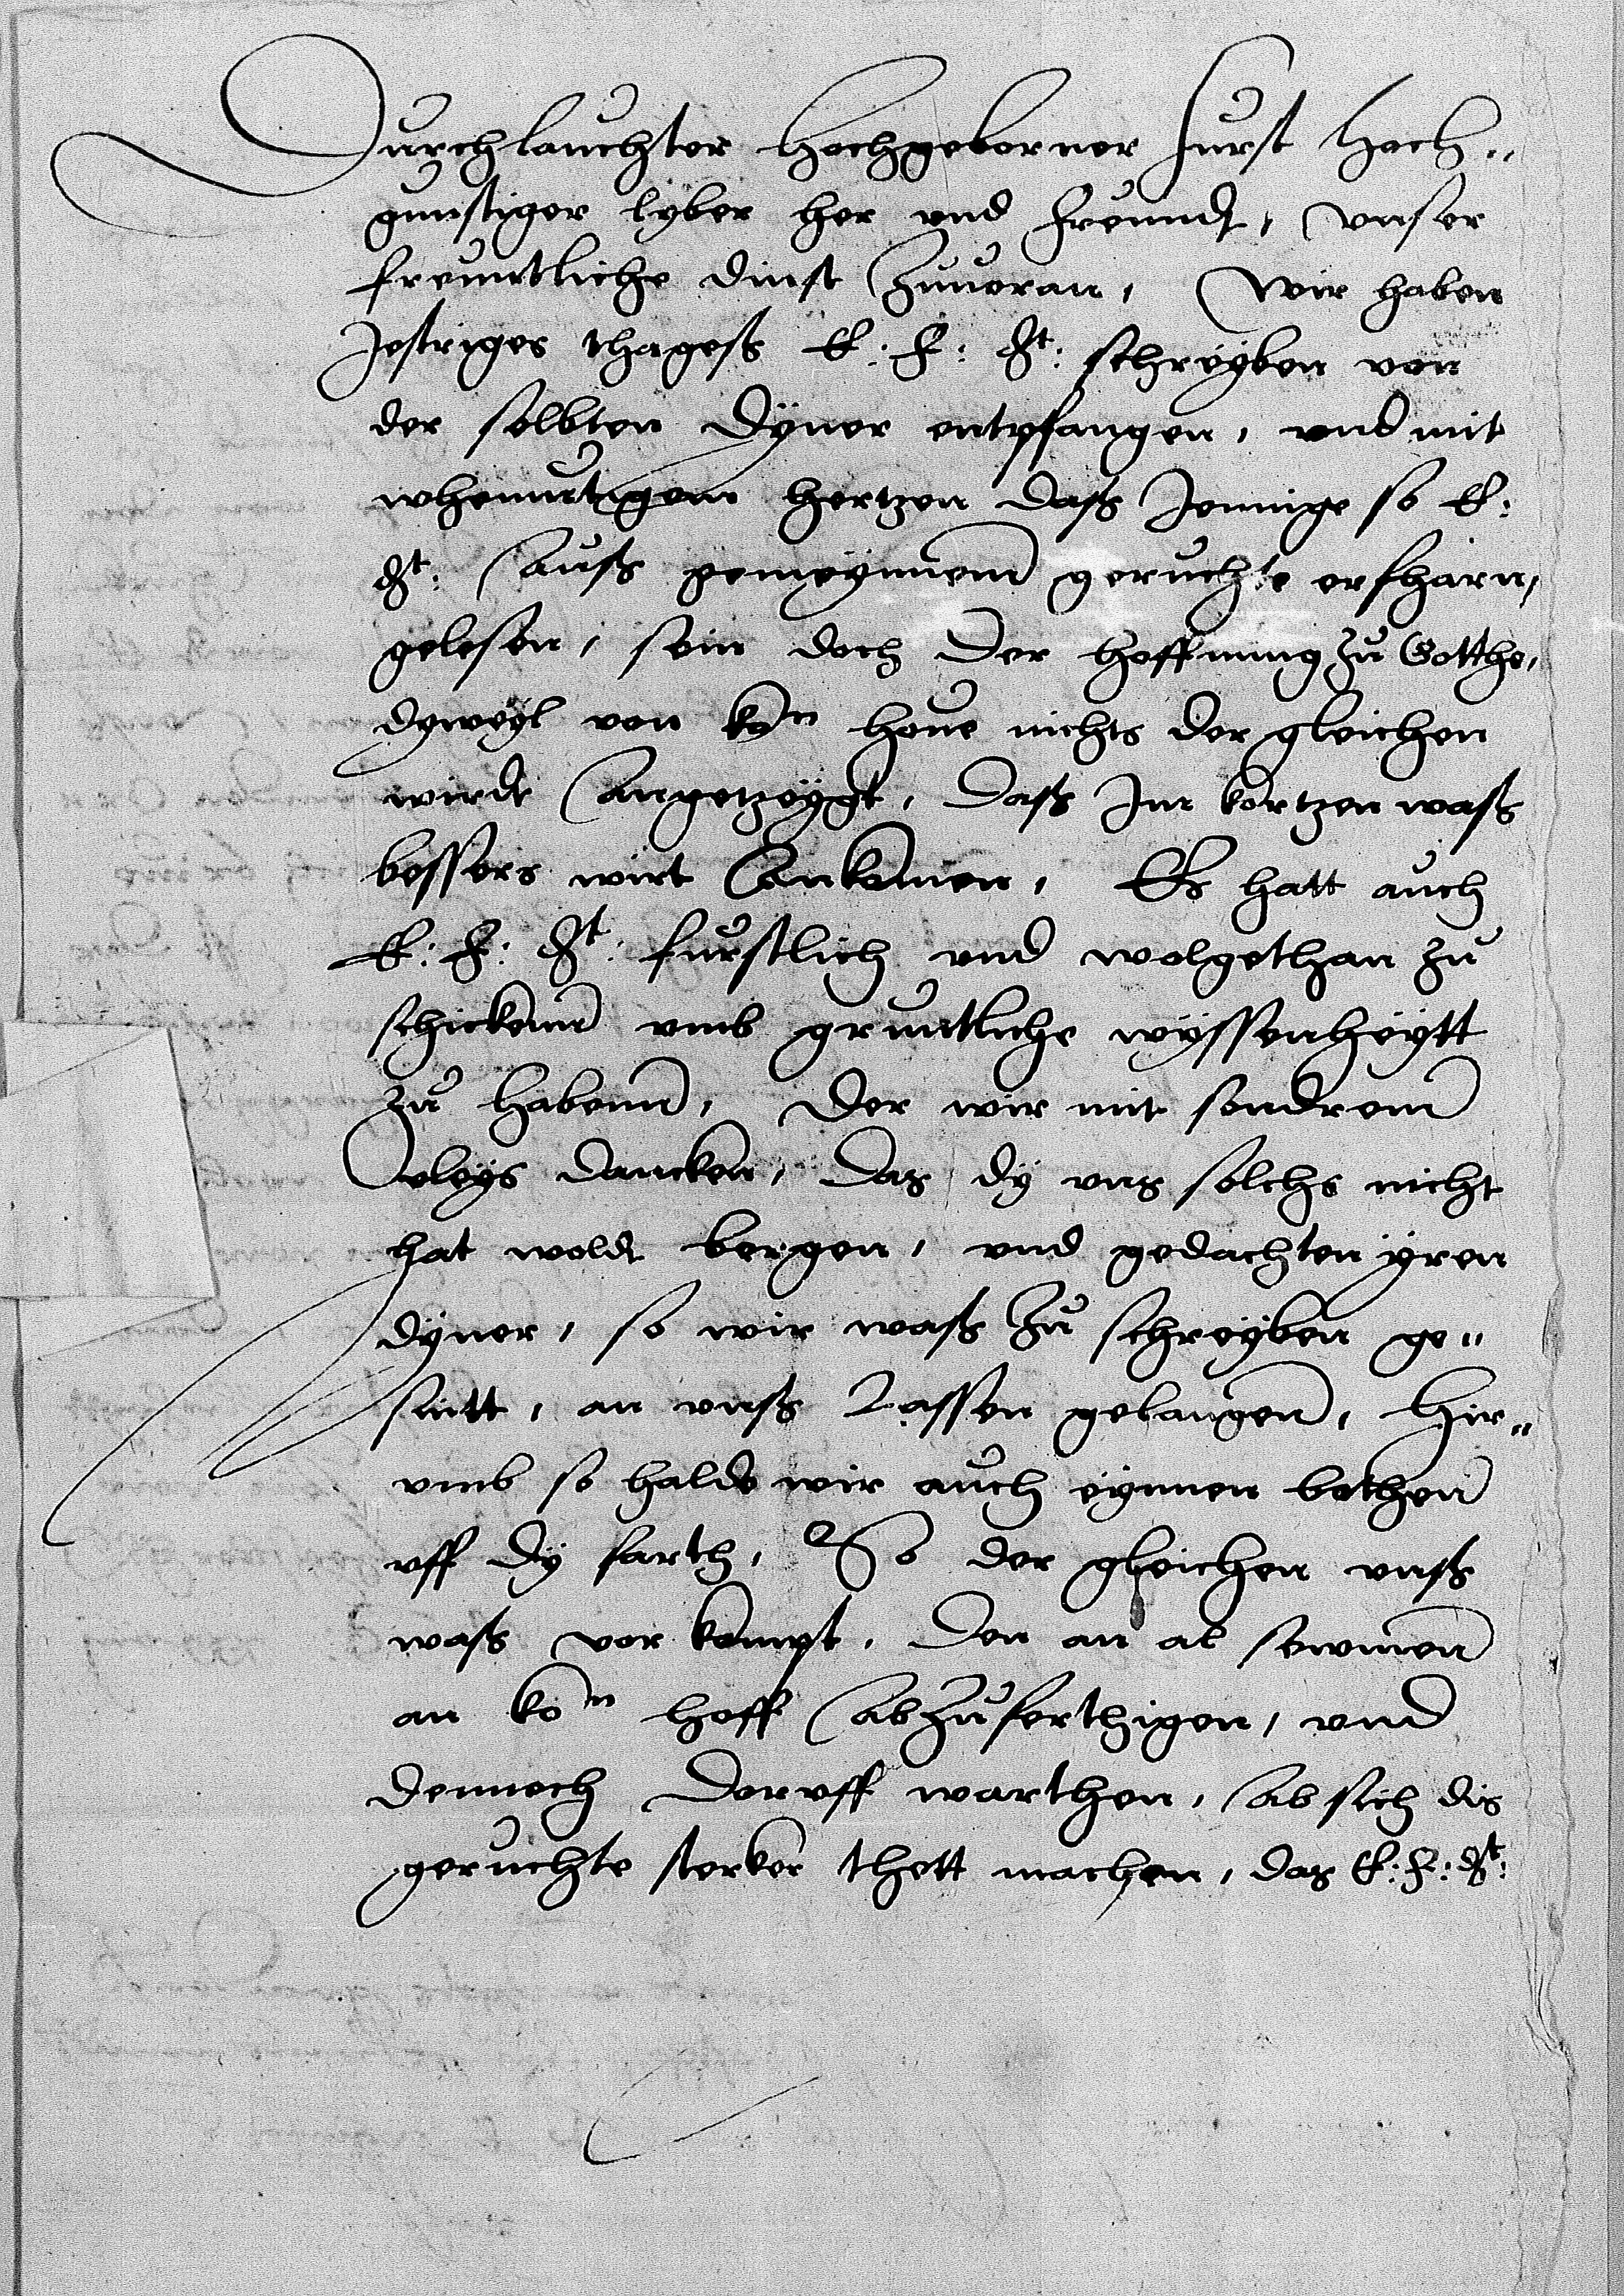 Durchlauchter hochgeborner furst hoch„
gunstiger lyber her vnd freundt, vnser
freuntliche dinst Zuuoran, Wir haben
Jestriges thagess E: F: Gt: schreyben von
der selbten Dyner entpfangen, vnd mit
whemutigem hertzen dass Jennige so E:
Gt: auss gemeynnem geruchte erfharn,
gelesen, sein doch der hoffnung zu Gotthe,
dyweyl von kon houe nichts der gleichen
wirdt angetzeygt, Dass Im kortzen wass
bessers wirt ankomen, Es hatt auch
E: F: Gt: furstlich vnd wolgethan zu
schickenn vmb gruntliche wyssenheytt
zu habenn, Der wir mit sondrem
vleys dancken, Das dy vns solchs nicht
hat woldt bergen, vnd gedachten yren
dyner, so wir wass Zu schreyben ge„
sint, an vnss Lassen gelangen, Hir„
vmb so halde wir auch eynnen bothen
vff dy farth, So der gleichen vnss
wass vor kompt, Den an al sewmen
an kon hoff abzuferthigen, vnd
dennoch Doruff warthen, ab sich dis
geruchte sterker thett machen, das E: F: Gt: